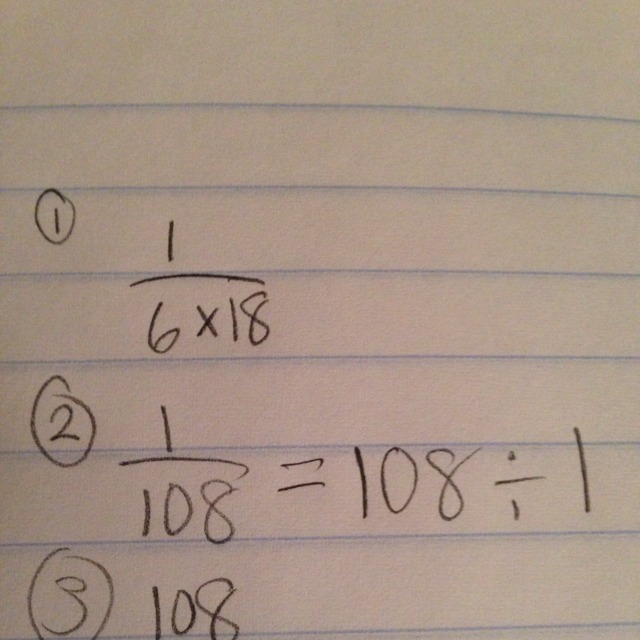 ① 1
6 x 18
② 1
108 = 108 ÷ 1
③ 108